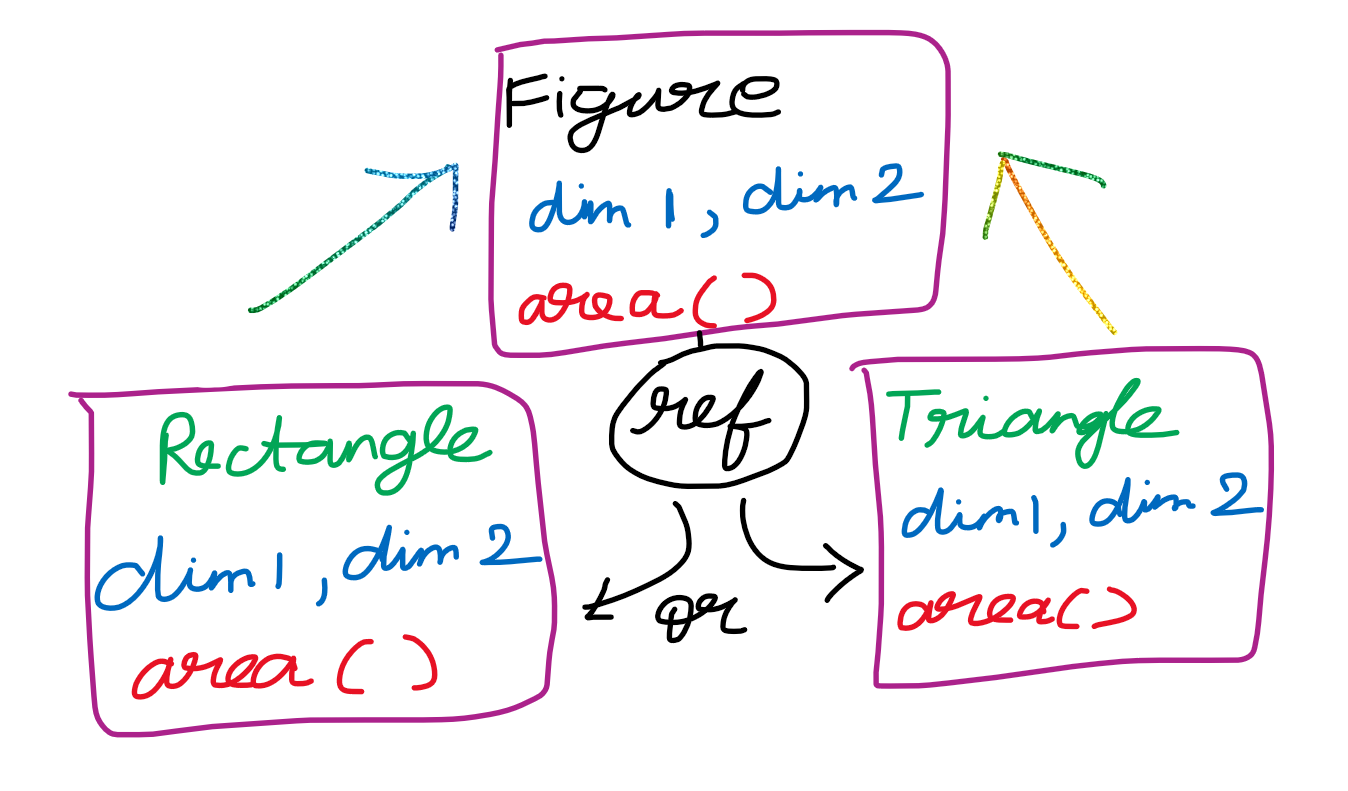 Figure
dim 1, dim 2
area()
ref
or
Rectangle
dim1, dim 2
area()
Triangle
dim1, dim 2
area()